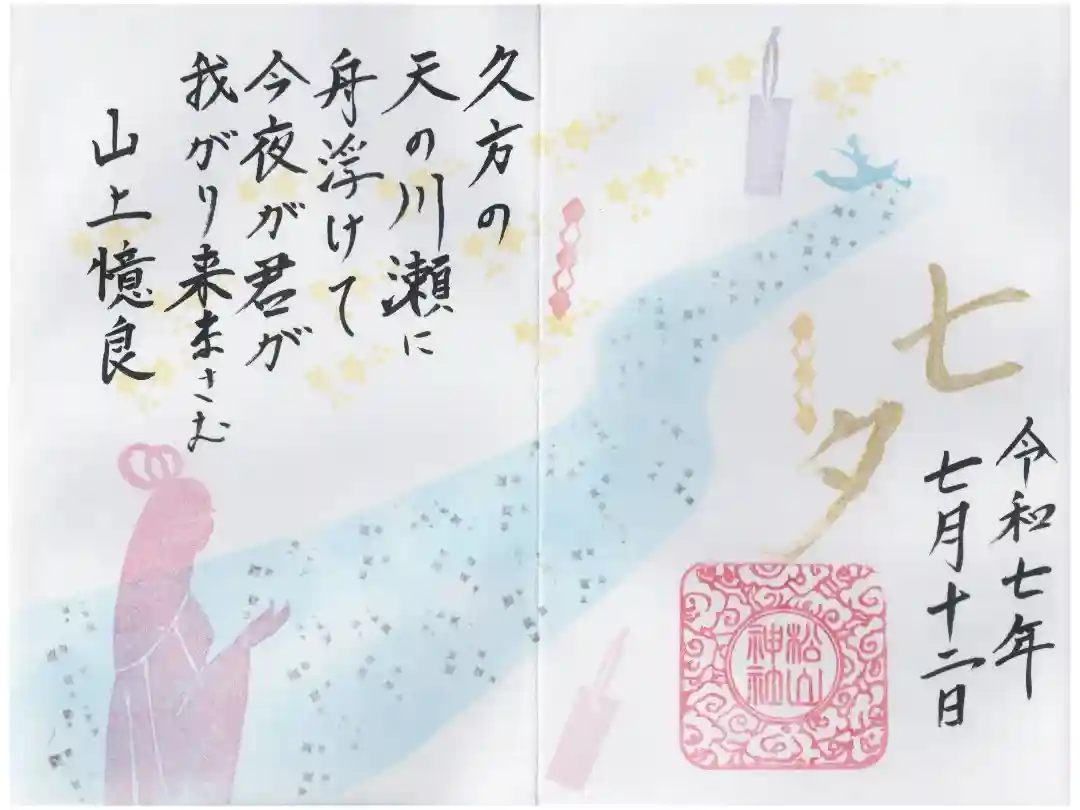 七夕
令和七年
七月十二日
松山
神社
久方の
天の川瀬に
舟浮けて
今夜が君が
我がり来まさむ
山上憶良